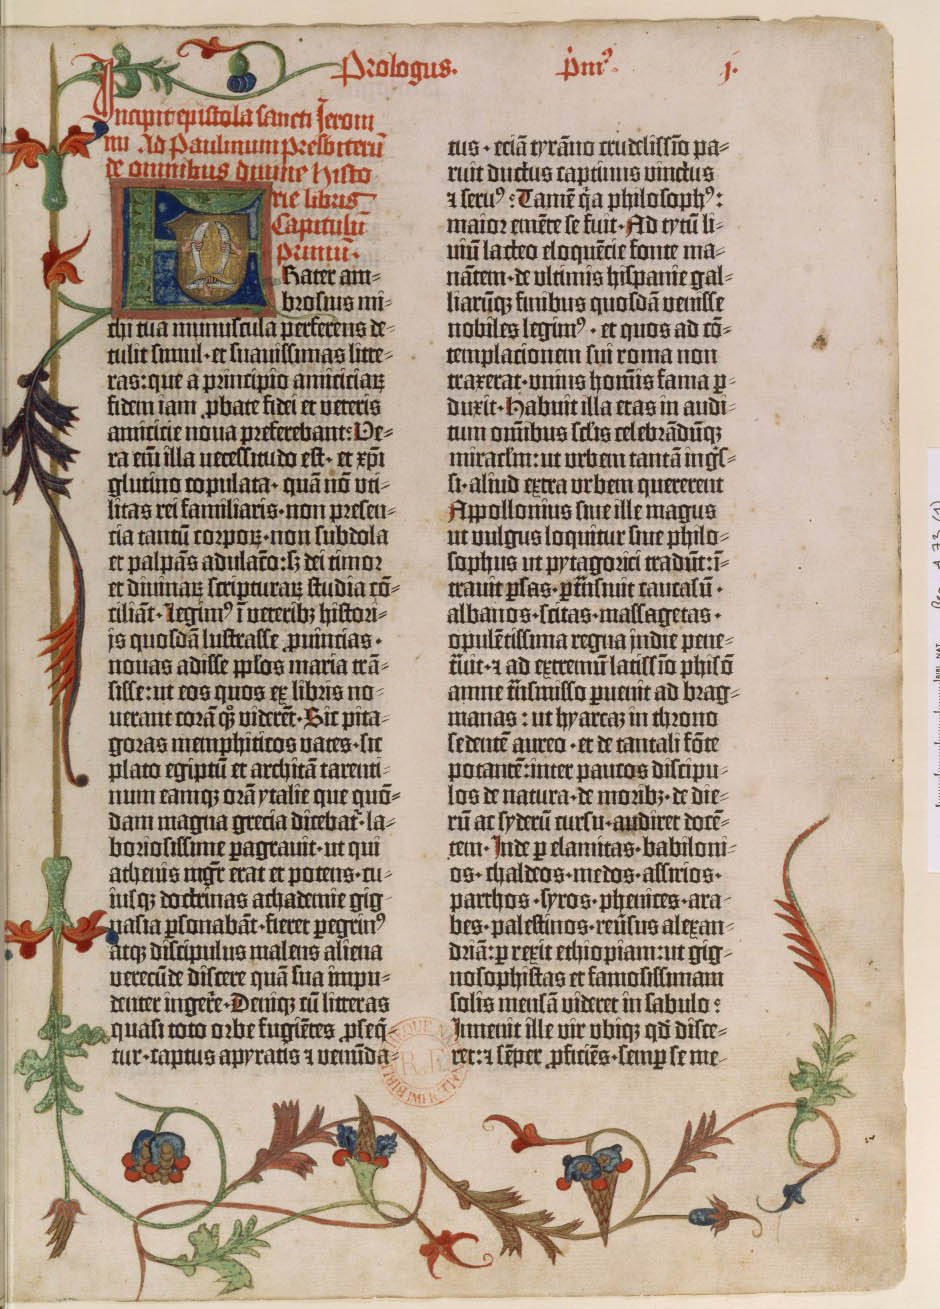 Prologus. P̄m⁹. j.
Incipit epistola sancti Ieroni
mi Ad Paulinum presbiterū
de omnibus divine histo
rie libris
Capitulū
primū·
Frater am⸗
brosius mi⸗
chi tua munuscula perferens de⸗
tulit simul·et suavissimas litte⸗
ras:que a principio amiciciaꝝ
fidem iam ꝓbate fidei et veteris
amicicie nova preferebant: Ve⸗
ra eni illa necessitudo est· et xp̄i
glutino copulata· quā nō uti⸗
litas rei familiaris·non presen⸗
cia tantū corpoꝝ·non subdola
et palpās adulatō:sꝫ dei timor
et divinaꝝ scripturaꝝ studia cō⸗
ciliāt· Legim⁹ ī veteribꝫ histori⸗
is quosdā lustrasse ꝓvincias·
novas adisse ppl̄os maria trā⸗
sisse:ut eos quos ex libris no⸗
verant corā qꝫ viderēt· Sic pita⸗
goras memphiticos vates·sic
plato egiptū et architā tarenti⸗
num eamqꝫ orā ytalie que quō⸗
dam magna grecia dicebat̄·la⸗
boriosissime ꝑagravit·ut qui
athenis mgr̄ erat et potens·cu⸗
iusqꝫ doctrinas achademie gig
nasia ꝑsonabāt·fieret ꝑegrin⁹
atqꝫ discipulus malens aliena
verecūde discere quā sua impu⸗
denter ingere᷒·Deniqꝫ cū litteras
quasi toto orbe fugiētes ꝑseq̄⸗
tur·captus a pyratis ⁊ venūda⸗
tus· eciā tyrāno crudelissīo pa⸗
ruit ductus captivus vinctus
⁊ serv⁹:Tamē q̄a philosoph⁹:
maior emēte se fuit· Ad tytū li⸗
viū lacteo eloquēcie fonte ma⸗
nātem·de ultimis hispanie gal⸗
liarūqꝫ finibus quosdā venisse
nobiles legim⁹· et quos ad cō⸗
templacionem sui roma non
traxerat·unius homīs fama ꝑ⸗
duxit·Habuit illa etas in audi⸗
tum om̄ibus sclis celebrādūqꝫ
miraclm̄:ut urbem tantā ingr̄s⸗
si·aliud extra urbem quererent
Appollonius sive ille magus
ut vulgus loquitur sive philo⸗
sophus ut pytagorici tradūt:ī⸗
travit ꝑsas·ꝑtrāsivit caucasū·
albanos·scitas·massagetas·
opulētissima regna indie pene⸗
trāvit·⁊ ad extremū latissīo phisō
amne trāsmisso ꝑvenit ad brag⸗
manas:ut hyarcaꝫ in throno
sedentē aureo·et de tantali fōte
potantē:inter paucos discipu⸗
los de natura·de moribꝫ·de die⸗
rū ac syderū cursu·audiret docē⸗
tem·Inde ꝑ elamitas·babiloni⸗
os·chaldeos·medos·assirios·
parthos·syros·phenices·ara⸗
bes·palestinos·reversus alexan⸗
driā:ꝑrexit ethiopiam:ut gig⸗
nosophistas et famosissimam
solis mensā videret in sabulo:
Invenit ille vir ubiqꝫ qd̄ disce⸗
ret:⁊ sēper ꝓficiēs·semꝑ se me⸗